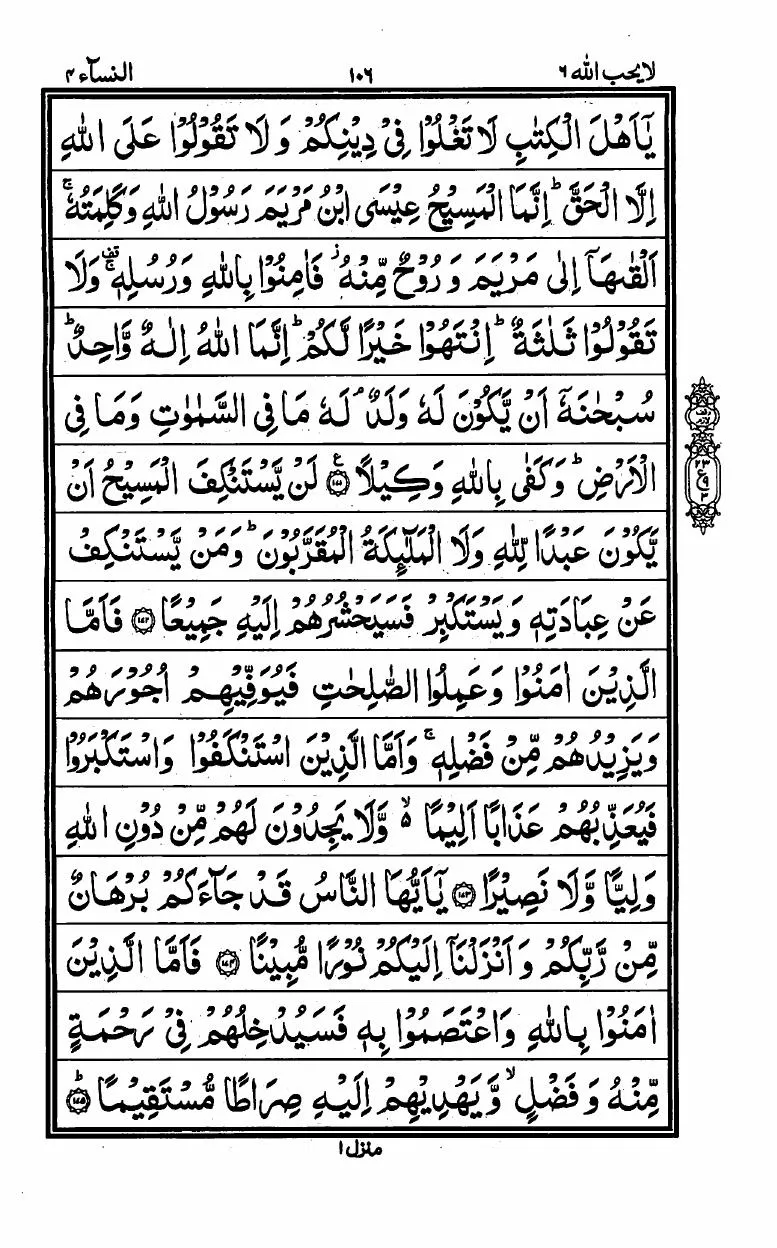 لایحب الله ۶
۱۰۶
النسآء ۴
یٰۤاَهْلَ الْكِتٰبِ لَا تَغْلُوْا فِیْ دِیْنِكُمْ وَ لَا تَقُوْلُوْا عَلَی اللّٰهِ
اِلَّا الْحَقَّ ؕ اِنَّمَا الْمَسِیْحُ عِیْسَی ابْنُ مَرْیَمَ رَسُوْلُ اللّٰهِ وَكَلِمَتُهٗ ۚ
اَلْقٰىهَاۤ اِلٰی مَرْیَمَ وَ رُوْحٌ مِّنْهُ ؗ فَاٰمِنُوْا بِاللّٰهِ وَرُسُلِهٖ ۚ۫ وَلَا
تَقُوْلُوْا ثَلٰثَةٌ ؕ اِنْتَهُوْا خَیْرًا لَّكُمْ ؕ اِنَّمَا اللّٰهُ اِلٰهٌ وَّاحِدٌ ؕ
سُبْحٰنَهٗۤ اَنْ یَّكُوْنَ لَهٗ وَلَدٌ ۘ لَهٗ مَا فِی السَّمٰوٰتِ وَمَا فِی
الْاَرْضِ ؕ وَكَفٰی بِاللّٰهِ وَكِیْلًا ۝۱۷۱ لَنْ یَّسْتَنْكِفَ الْمَسِیْحُ اَنْ
یَّكُوْنَ عَبْدًا لِّلّٰهِ وَلَا الْمَلٰٓئِكَةُ الْمُقَرَّبُوْنَ ؕ وَمَنْ یَّسْتَنْكِفْ
عَنْ عِبَادَتِهٖ وَیَسْتَكْبِرْ فَسَیَحْشُرُهُمْ اِلَیْهِ جَمِیْعًا ۝۱۷۲ فَاَمَّا
الَّذِیْنَ اٰمَنُوْا وَعَمِلُوا الصّٰلِحٰتِ فَیُوَفِّیْهِمْ اُجُوْرَهُمْ
وَیَزِیْدُهُمْ مِّنْ فَضْلِهٖ ۚ وَاَمَّا الَّذِیْنَ اسْتَنْكَفُوْا وَاسْتَكْبَرُوْا
فَیُعَذِّبُهُمْ عَذَابًا اَلِیْمًا ۙ۵ وَّلَا یَجِدُوْنَ لَهُمْ مِّنْ دُوْنِ اللّٰهِ
وَلِیًّا وَّلَا نَصِیْرًا ۝۱۷۳ یٰۤاَیُّهَا النَّاسُ قَدْ جَآءَكُمْ بُرْهَانٌ
مِّنْ رَّبِّكُمْ وَ اَنْزَلْنَاۤ اِلَیْكُمْ نُوْرًا مُّبِیْنًا ۝۱۷۴ فَاَمَّا الَّذِیْنَ
اٰمَنُوْا بِاللّٰهِ وَاعْتَصَمُوْا بِهٖ فَسَیُدْخِلُهُمْ فِیْ رَحْمَةٍ
مِّنْهُ وَ فَضْلٍ ۙ وَّیَهْدِیْهِمْ اِلَیْهِ صِرَاطًا مُّسْتَقِیْمًا ۝۱۷۵ؕ
۲۳
ع
۹
۳
منزل ۱